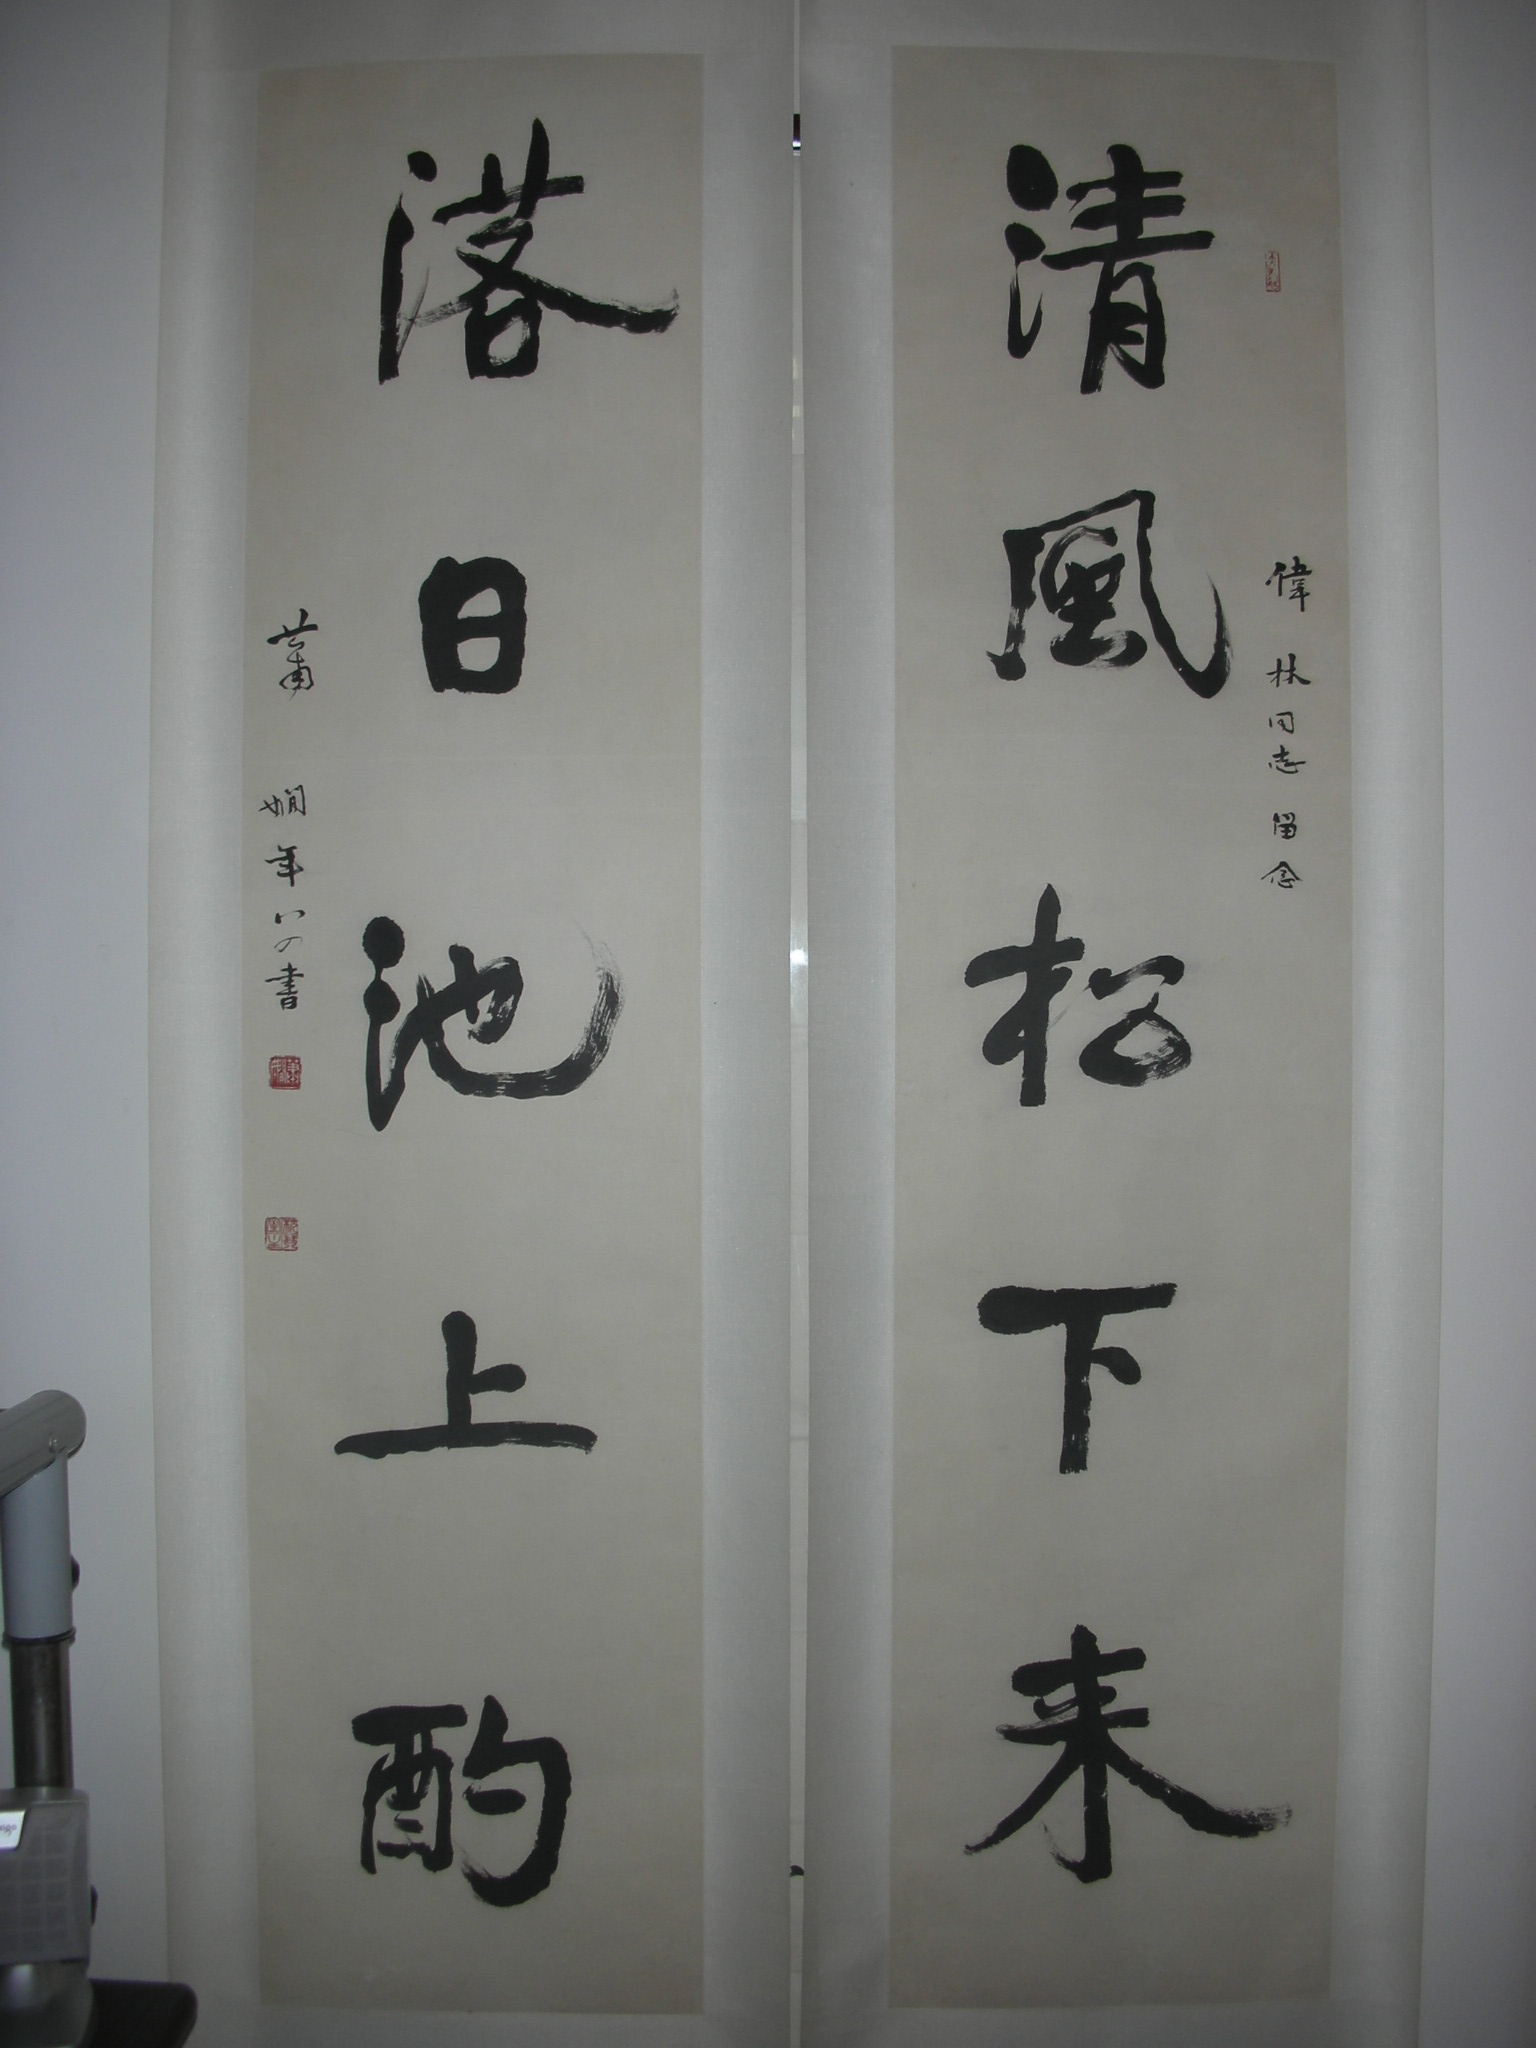 偉林同志留念
清風松下来
落日池上酌
蕭嫻年八四書